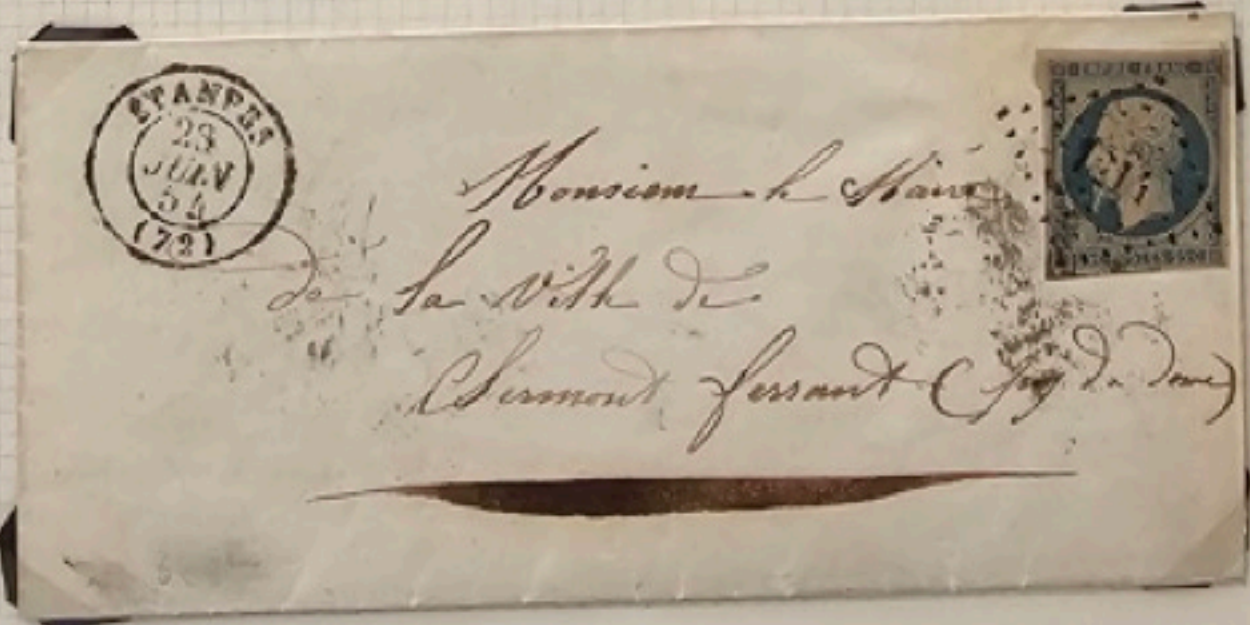 ETAMPES
23
JUIN
54
(72)
Monsieur le Maire
de la Ville de
Clermont ferrant (Puy du Dome)